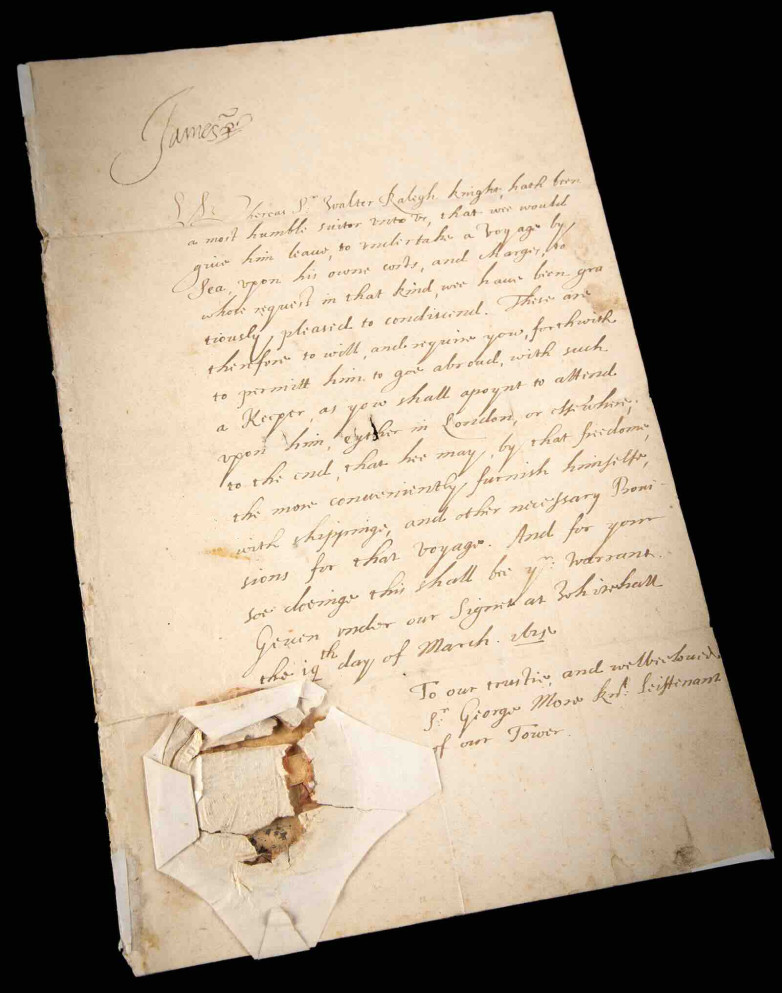 James R
Whereas Sr. Walter Raleigh knight, hath been
a most humble suitor unto us, that wee would
give him leave, to undertake a Voyage by
Sea, upon his owne costs, and Charges, to
whose request in that kind, wee have been gra
tiously pleased to condiscend. These are
therefore to will, and require yow, forthwith
to permitt him to goe abroad, with such
a Keeper, as yow shall apoynt to attend
upon him, eyther in London, or elsewhere,
to the end, that hee may, by that freedome,
the more conveniently furnish himselfe,
with shippinge, and other necessary Provi-
sions for that voyage. And for your
soe doeinge this shall be yr: warrant.
Geven under our Signet at Whitehall
the 19th day of March. 1615
To our trustie, and welbeloved,
Sr. George More knt. Leiftenant
of our Tower.